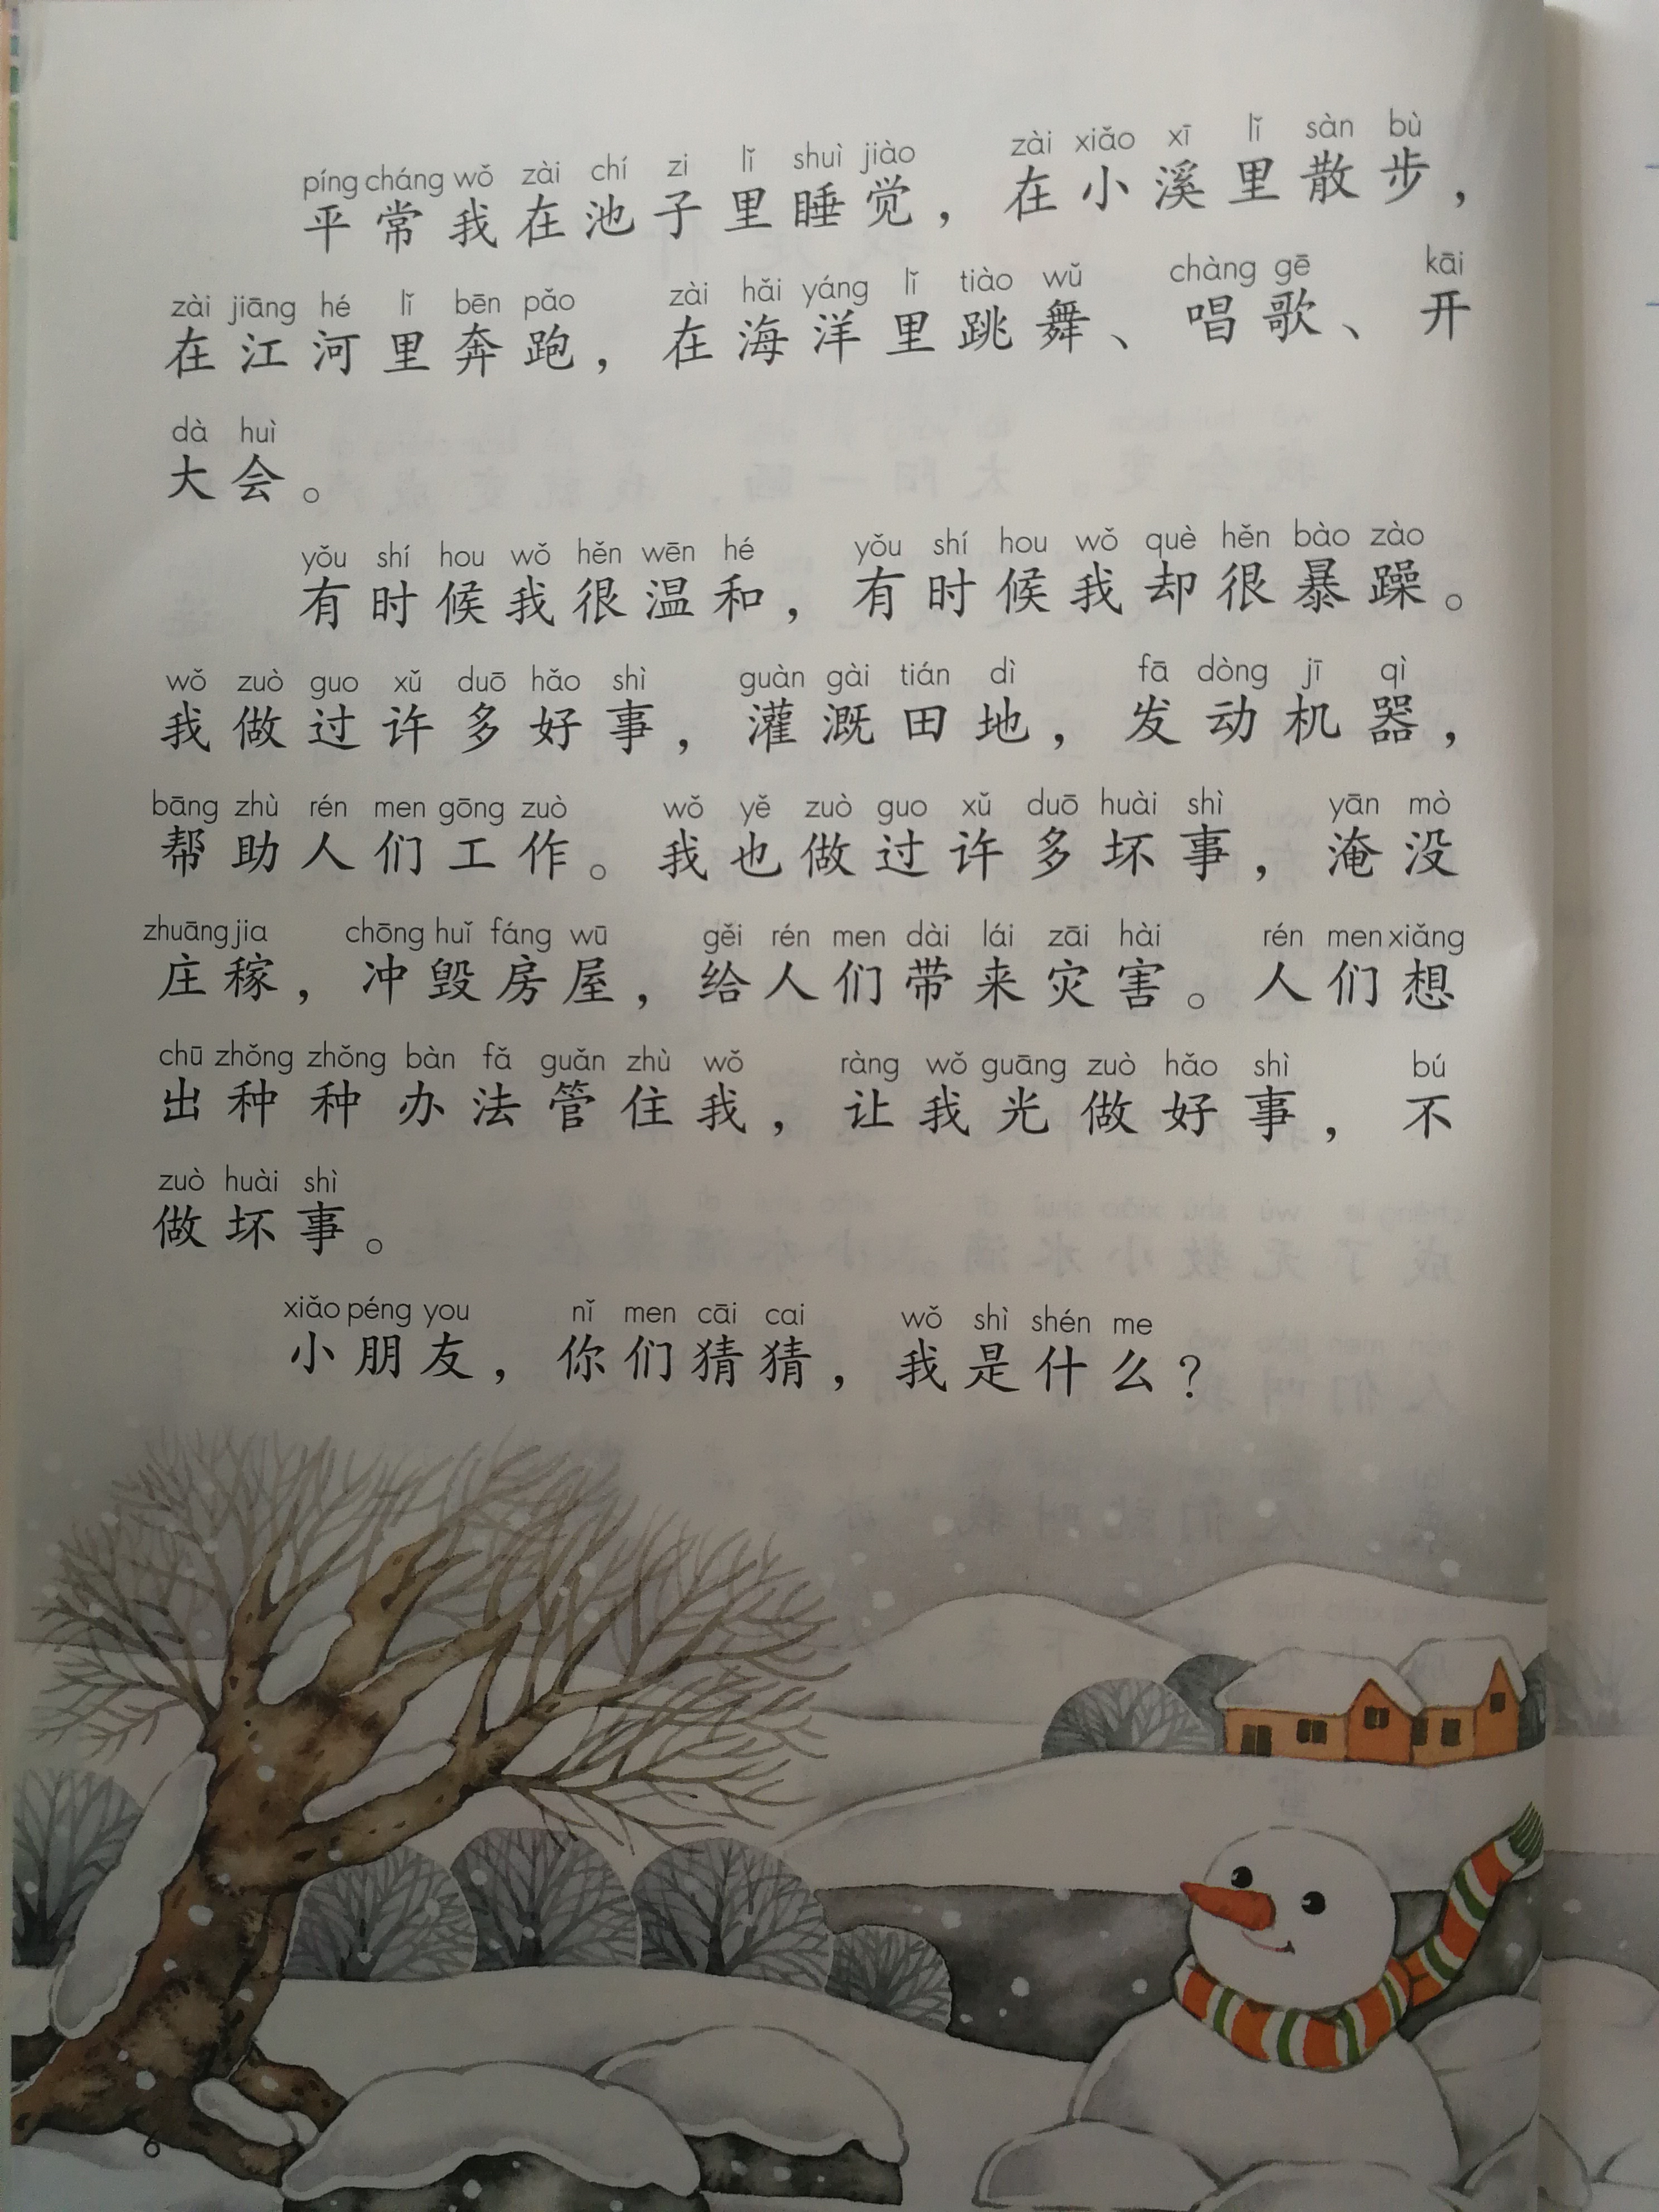 píng cháng wǒ zài chí zi lǐ shuì jiào zài xiǎo xī lǐ sàn bù
平常我在池子里睡觉，在小溪里散步，
zài jiāng hé lǐ bēn pǎo zài hǎi yáng lǐ tiào wǔ chàng gē kāi
在江河里奔跑，在海洋里跳舞、唱歌、开
dà huì
大会。
yǒu shí hou wǒ hěn wēn hé yǒu shí hou wǒ què hěn bào zào
有时候我很温和，有时候我却很暴躁。
wǒ zuò guo xǔ duō hǎo shì guàn gài tián dì fā dòng jī qì
我做过许多好事，灌溉田地，发动机器，
bāng zhù rén men gōng zuò wǒ yě zuò guo xǔ duō huài shì yān mò
帮助人们工作。我也做过许多坏事，淹没
zhuāng jia chōng huǐ fáng wū gěi rén men dài lái zāi hài rén men xiǎng
庄稼，冲毁房屋，给人们带来灾害。人们想
chū zhǒng zhǒng bàn fǎ guǎn zhù wǒ ràng wǒ guāng zuò hǎo shì bú
出种种办法管住我，让我光做好事，不
zuò huài shì
做坏事。
xiǎo péng you nǐ men cāi cai wǒ shì shén me
小朋友，你们猜猜，我是什么？
6